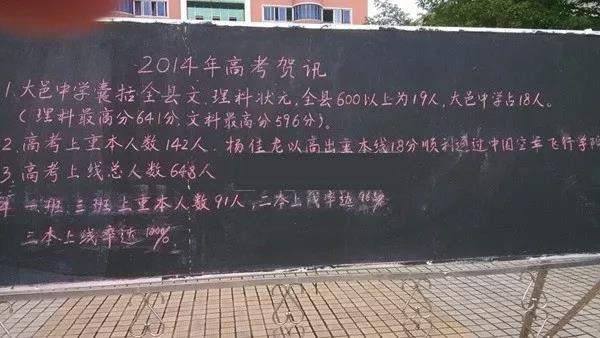 2014年高考贺讯
1.大邑中学囊括全县文.理科状元,全县600以上为19人,大邑中学占18人。
(理科最高分641分,文科最高分596分)。
2.高考上重本人数142人. 杨佳老以高出重本线18分顺利通过中国空军飞行学院
3.高考上线总人数648人
4 一班,三班上重本人数91人,二本上线率达96%
三本上线率达100%.